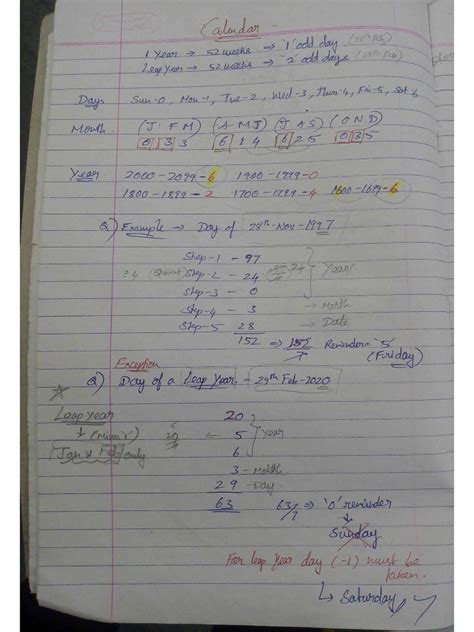 Calendar -
1 Year → 52 weeks → '1' odd day (28th Feb)
Leap Year → 52 weeks → '2' odd days (29th Feb)
Days Sun-0, Mon-1, Tue-2, Wed-3, Thu-4, Fri-5, Sat-6
Month (J F M) (A M J) (J A S) (O N D)
0 3 3 6 1 4 6 2 5 0 3 5
Year 2000-2099-6 1900-1999-0
1800-1899-2 1700-1799-4 1600-1699-6
Q) Example → Day of 28th-Nov-1997
Step-1 - 97
÷4 (Quotient) Step-2 - 24 24 Year
Step-3 - 0
Step-4 - 3 → Month
Step-5 28 → Date
152 ⇒ 152/7 Reminder- '5'
(Friday)
Exception
Q) Day of a Leap Year - 29th Feb-2020
Leap year 20
5 Year
Jan & Feb only 6
3 - Month
29 - Day
63 63/7 ⇒ '0' reminder
Sunday
For leap Year day (-1) must be
taken.
↳ Saturday